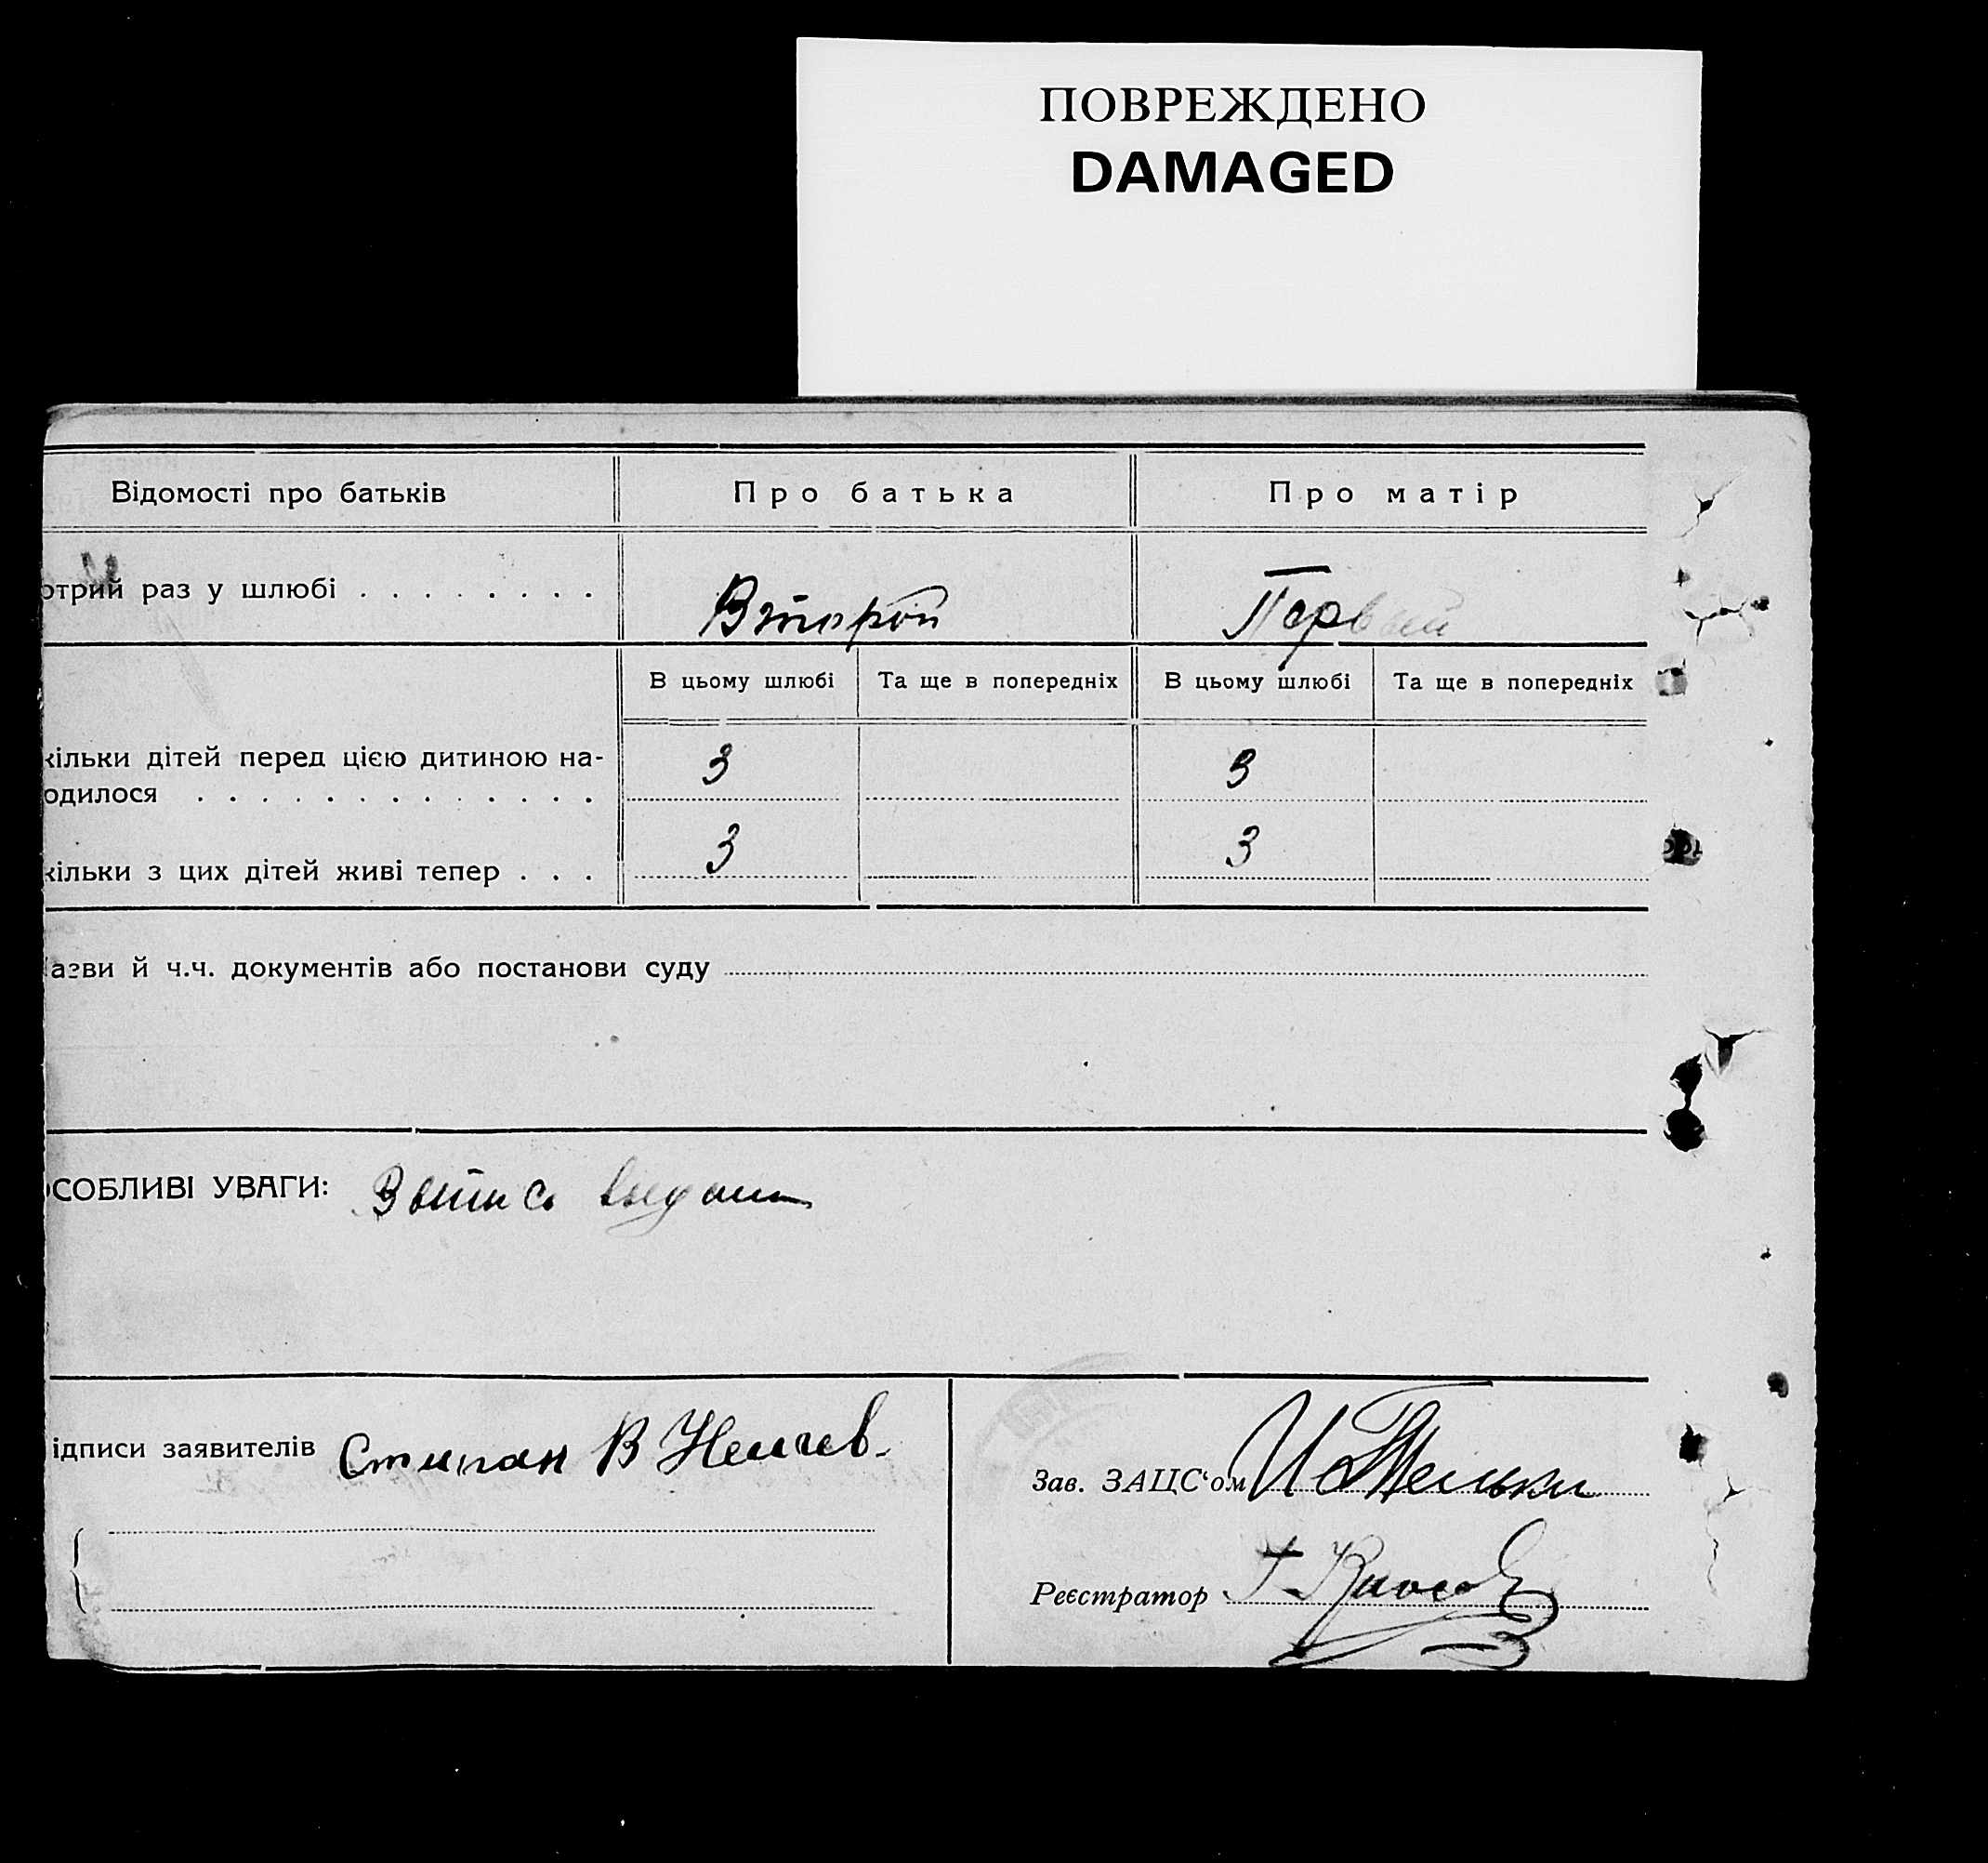 ПОВРЕЖДЕНО
DAMAGED
Відомості про батьків
Про батька
Про матір
отрий раз у шлюбі
Второй
Первый
В цьому шлюбі
Та ще в попередніх
В цьому шлюбі
Та ще в попередніх
кільки дітей перед цією дитиною на-
одилося
3
3
кільки з цих дітей живі тепер
3
3
азви й ч.ч. документів або постанови суду
ОСОБЛИВІ УВАГИ: Выпись выдана
ідписи заявителів Степан В
Зав. ЗАЦС'ом
Реєстратор